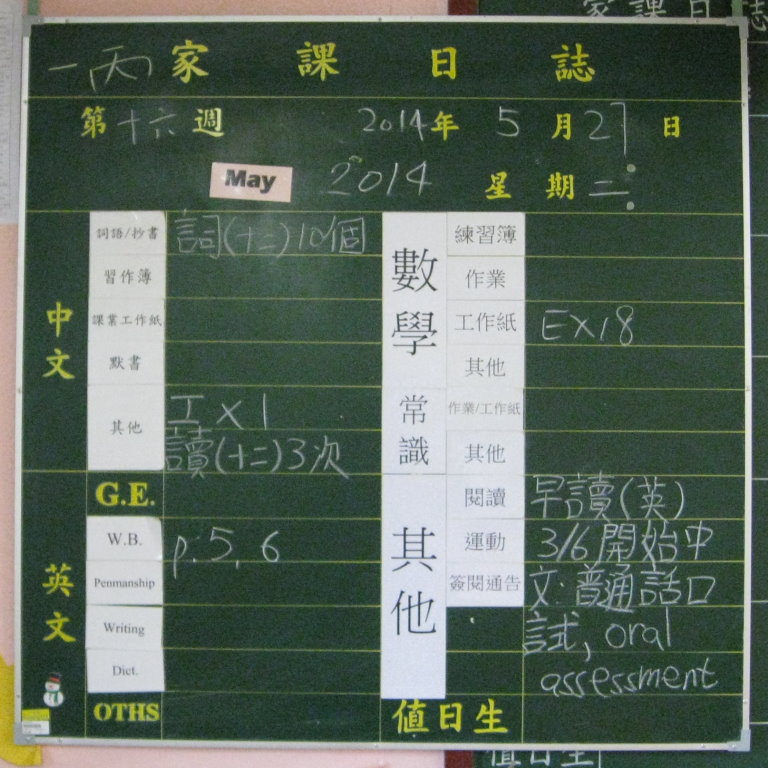 一丙 家課日誌
第十六週 2014年 5月27日
May 2014 星期二
中文
詞語/抄書 詞(十二)10個
習作簿
課業工作紙
默書
其他 工 x 1
讀(十二)3次
英文
G.E.
W.B. p.5, 6
Penmanship
Writing
Dict.
OTHS
數學
練習簿
作業
工作紙 EX18
其他
常識
作業/工作紙
其他
其他
閱讀 早讀(英)
運動 3/6開始中
簽閱通告 文:普通話口
試, oral
assessment
值日生
家課日誌
值日生